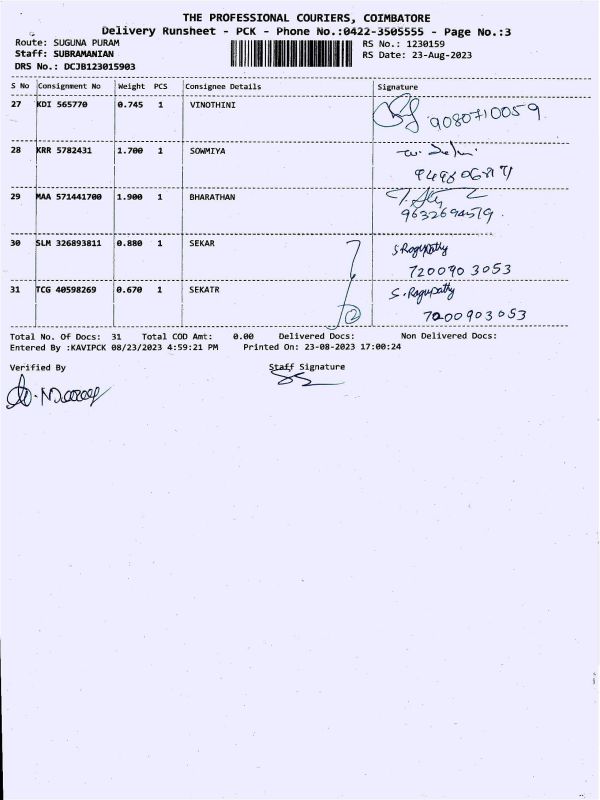 THE PROFESSIONAL COURIERS, COIMBATORE
Delivery Runsheet - PCK - Phone No.:0422-3505555 - Page No.:3
Route: SUGUNA PURAM RS No.: 1230159
Staff: SUBRAMANIAN RS Date: 23-Aug-2023
DRS No.: DCJB123015903
S No Consignment No Weight PCS Consignee Details Signature
27 KDI 565770 0.745 1 VINOTHINI
9080710059
28 KRR 5782431 1.700 1 SOWMIYA
29 MAA 571441700 1.900 1 BHARATHAN
30 SLM 326893811 0.880 1 SEKAR S Rogupathy
7200903053
31 TCG 40598269 0.670 1 SEKATR S. Ragupathy
2 7200903053
Total No. Of Docs: 31 Total COD Amt: 0.00 Delivered Docs: Non Delivered Docs:
Entered By :KAVIPCK 08/23/2023 4:59:21 PM Printed On: 23-08-2023 17:00:24
Verified By Staff Signature